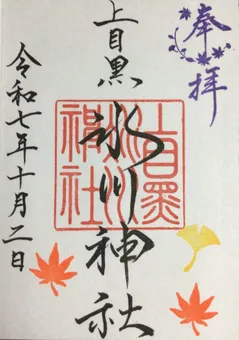 奉拝
上目黒
氷川神社
上目黒
氷川
神社
令和七年十月二日